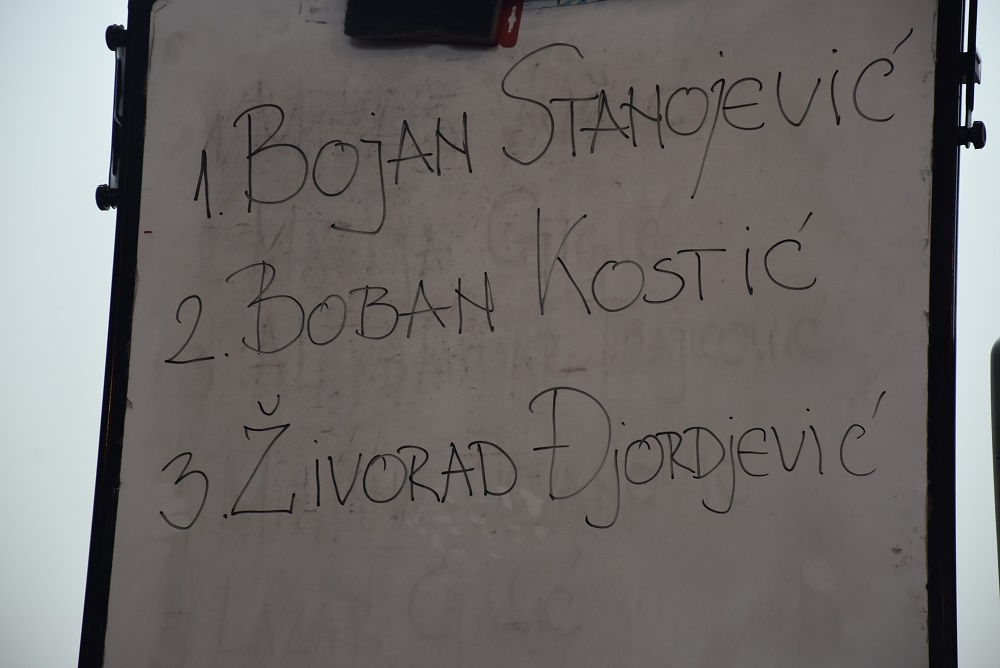 1. BOJAN STANOJEVIĆ
2. BOBAN KOSTIĆ
3. ŽIVORAD ĐJORDJEVIĆ